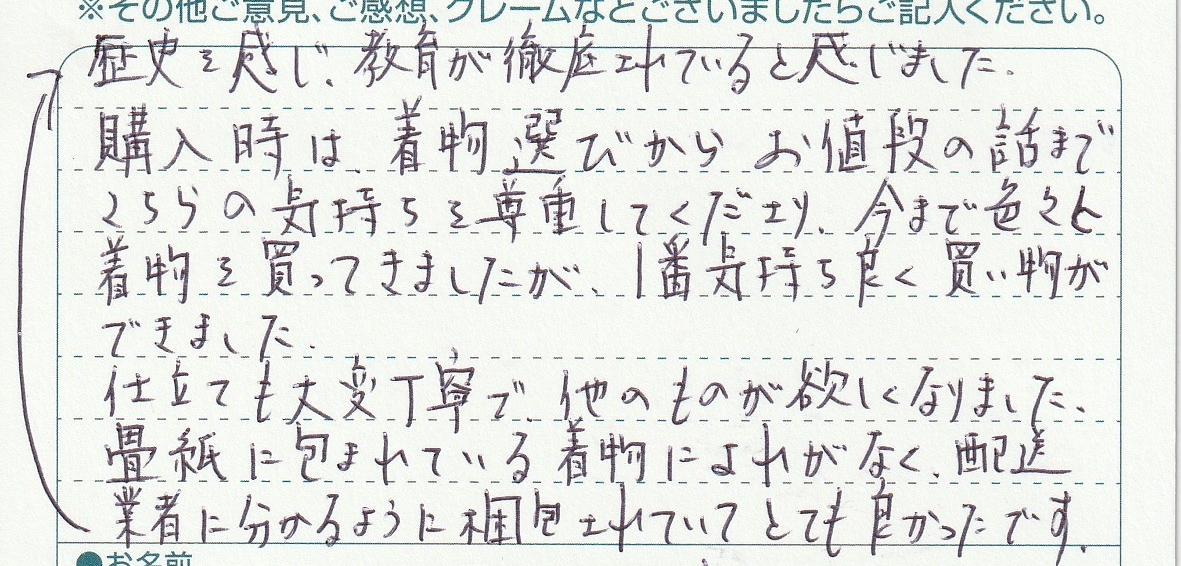 ※その他ご意見、ご感想、クレームなどございましたらご記入ください。
歴史を感じ、教育が徹底されていると感じました。
購入時は、着物選びからお値段の話まで
こちらの気持ちを尊重してくださり、今まで色々と
着物を買ってきましたが、1番気持ち良く買い物が
できました。
仕立ても大変丁寧で、他のものが欲しくなりました。
畳紙に包まれている着物によれがなく、配送
業者に分かるように梱包されていてとても良かったです。
●お名前